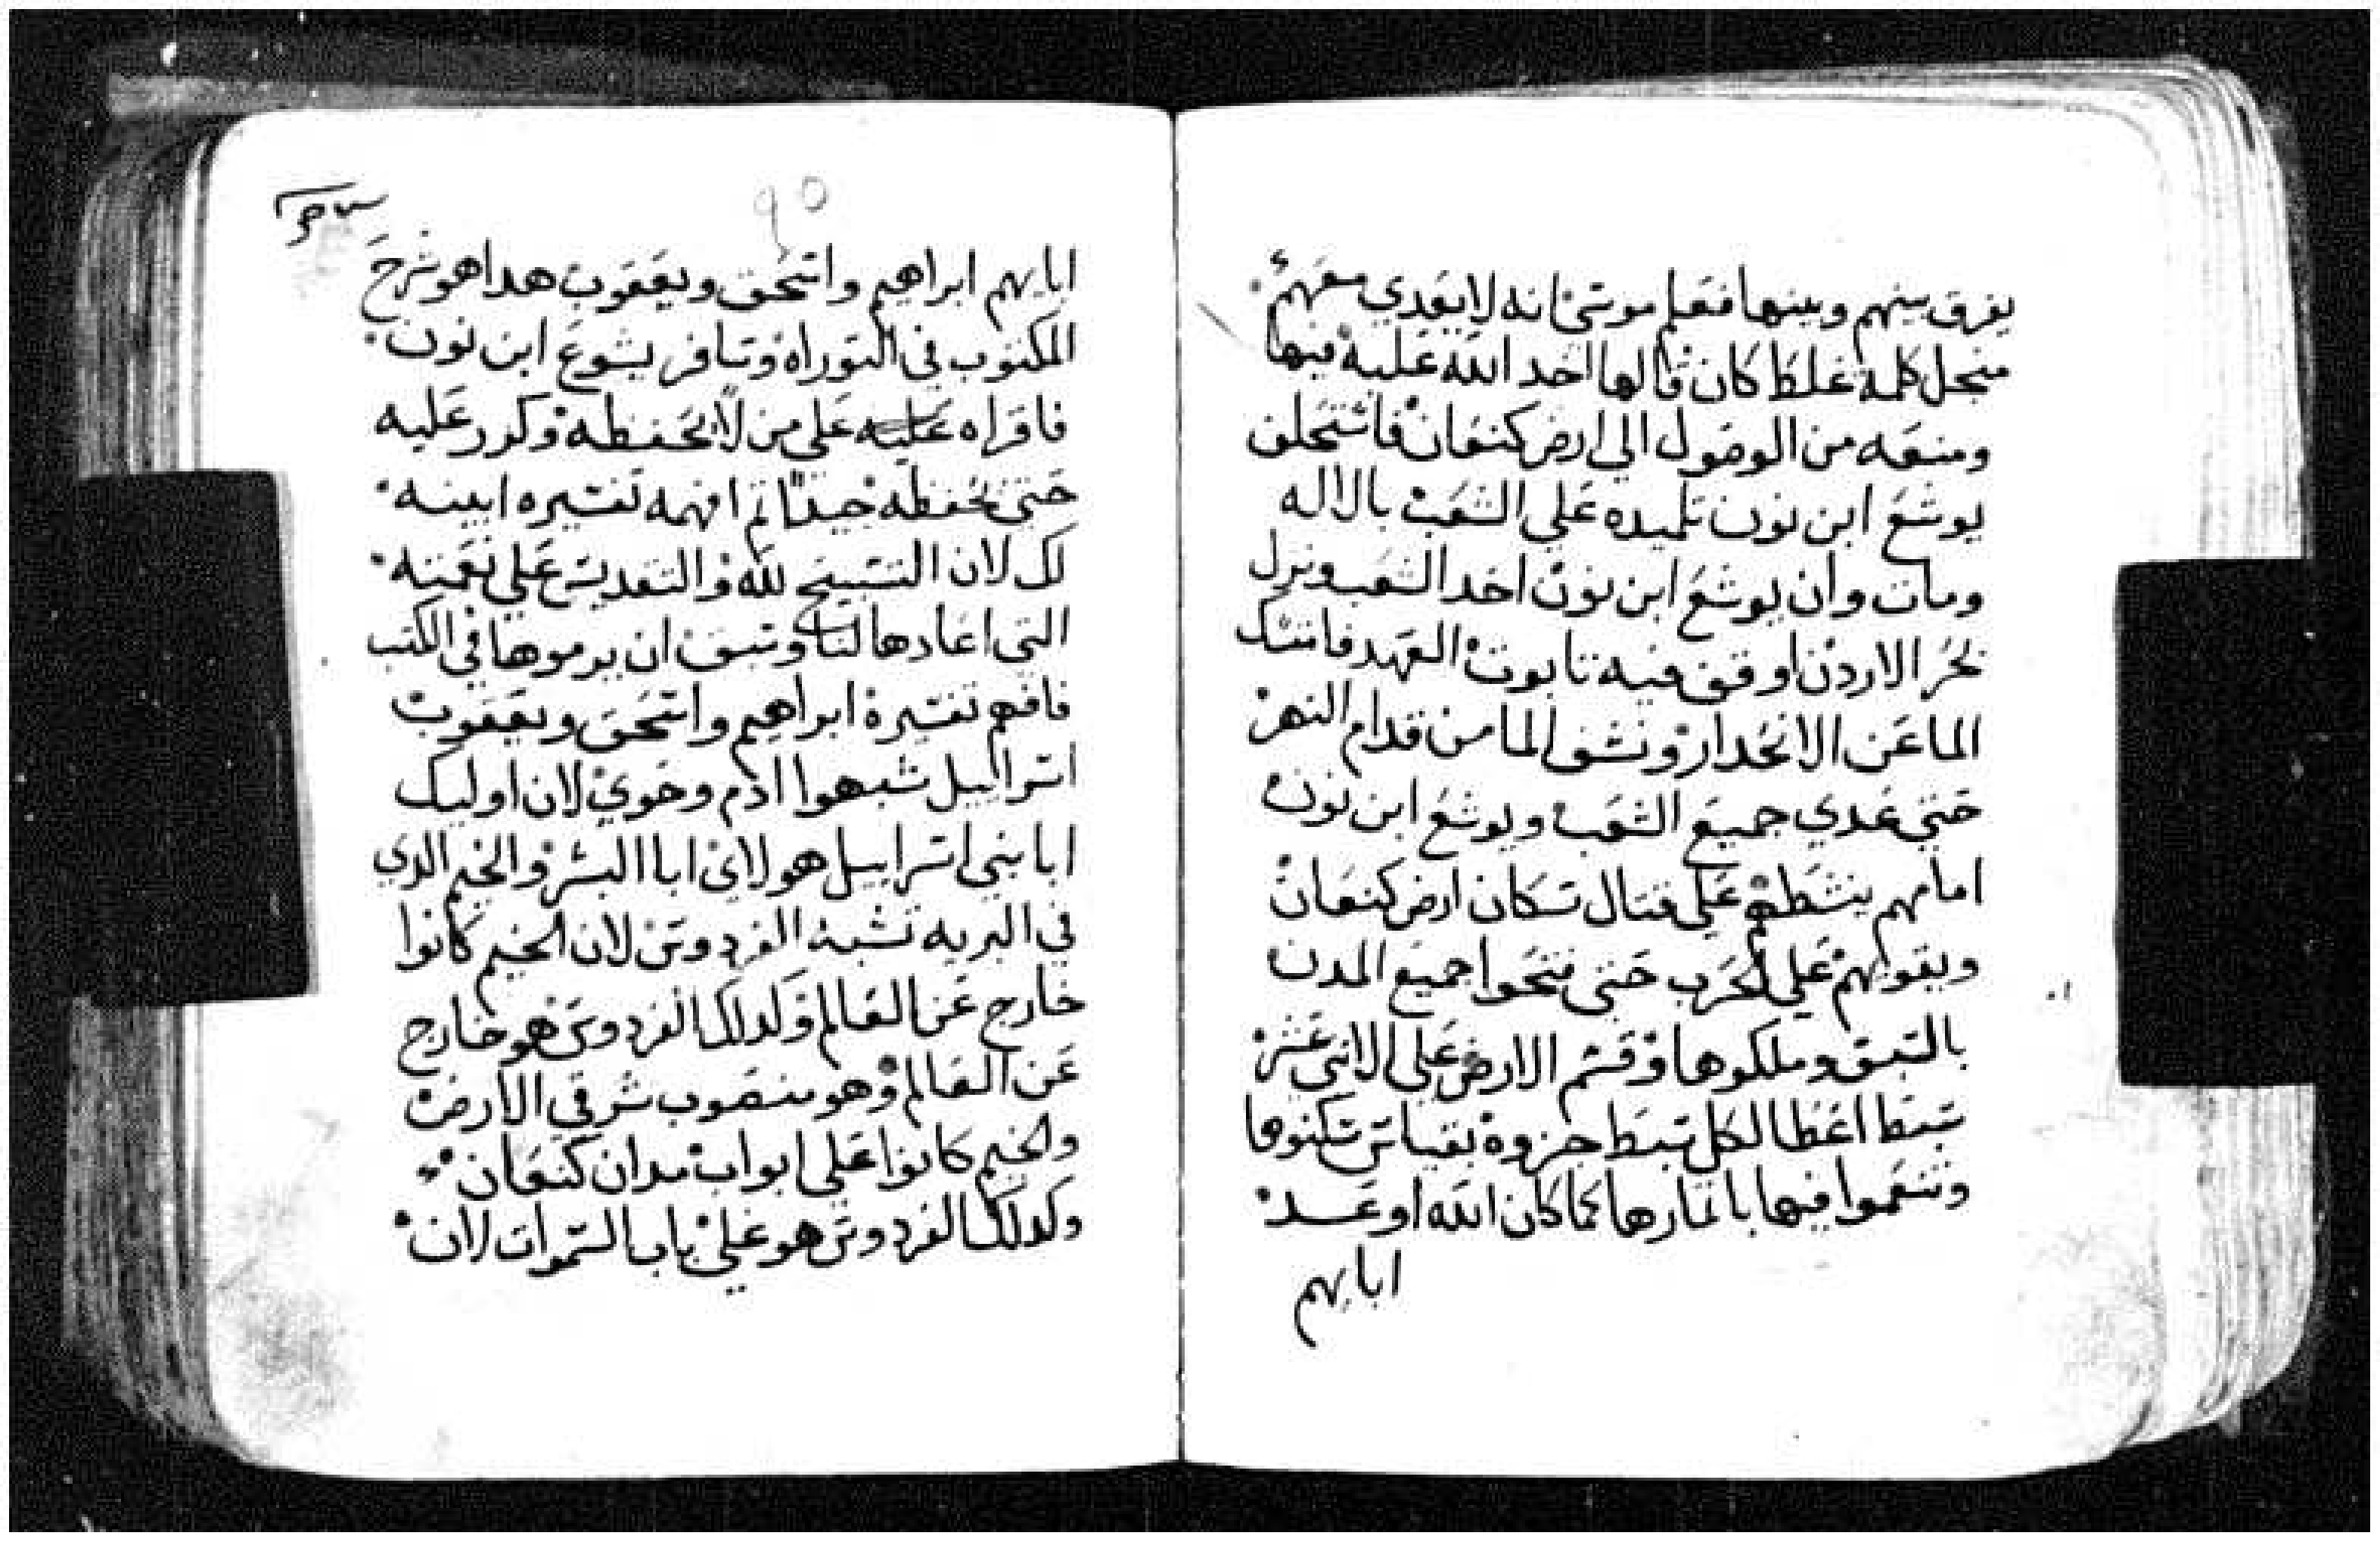 يفرق بينهم وبينها فعلم موسى انه لا يعدي معهم
منجل كلمة غلط كان قالها اخد الله عليه فيها
ومنعه من الوصول الي ارض كنعان فاستحلف
يوشع ابن نون تلميده علي الشعب بالاله
ومات وان يوشع ابن نون اخد الشعب ونزل
بحر الاردن اوقف فيه تابوت العهد فامتسك
الما عن الانحدار ونشف الما من قدام النهر
حتي عدي جميع الشعب ويوشع ابن نون
امامهم ينشطهم علي قتال سكان ارض كنعان
ويقويهم علي الحرب حتي فتحوا جميع المدن
بالسيف وملكوها وقسم الارض علي الاتني عشر
سبط اعطا لكل سبط جزوه بقياس سكنوها
وتنعموا فيها باتمارها كما كان الله اوعد
ابايهم
٩٥
ابايهم ابراهيم واسحق ويعقوب هدا هو شرح
المكتوب في التوراه وسافر يشوع ابن نون
فاقراه عليه علي من لا يحفظه وكرر عليه
حتي يحفظه جيدا تم افهمه تفسيره ابينه
لك لان التسبيح لله والتقديس علي نعمته
التي اعادها لنا وسبق ان يرموها في الكتب
فافهم تفسيره ابراهيم واسحق ويعقوب
اسراييل شبهوا ادم وحوي لان اوليك
ابا بني اسراييل هولاي ابا البشر والخيم الدي
في البريه تشبه الفردوس لان الخيم كانوا
خارج عن العالم ولدلك الفردوس هو خارج
عن العالم وهو منصوب شرقي الارض
والخيم كانوا علي ابواب مدان كنعان
وكدلك الفردوس هو علي باب السموات لان